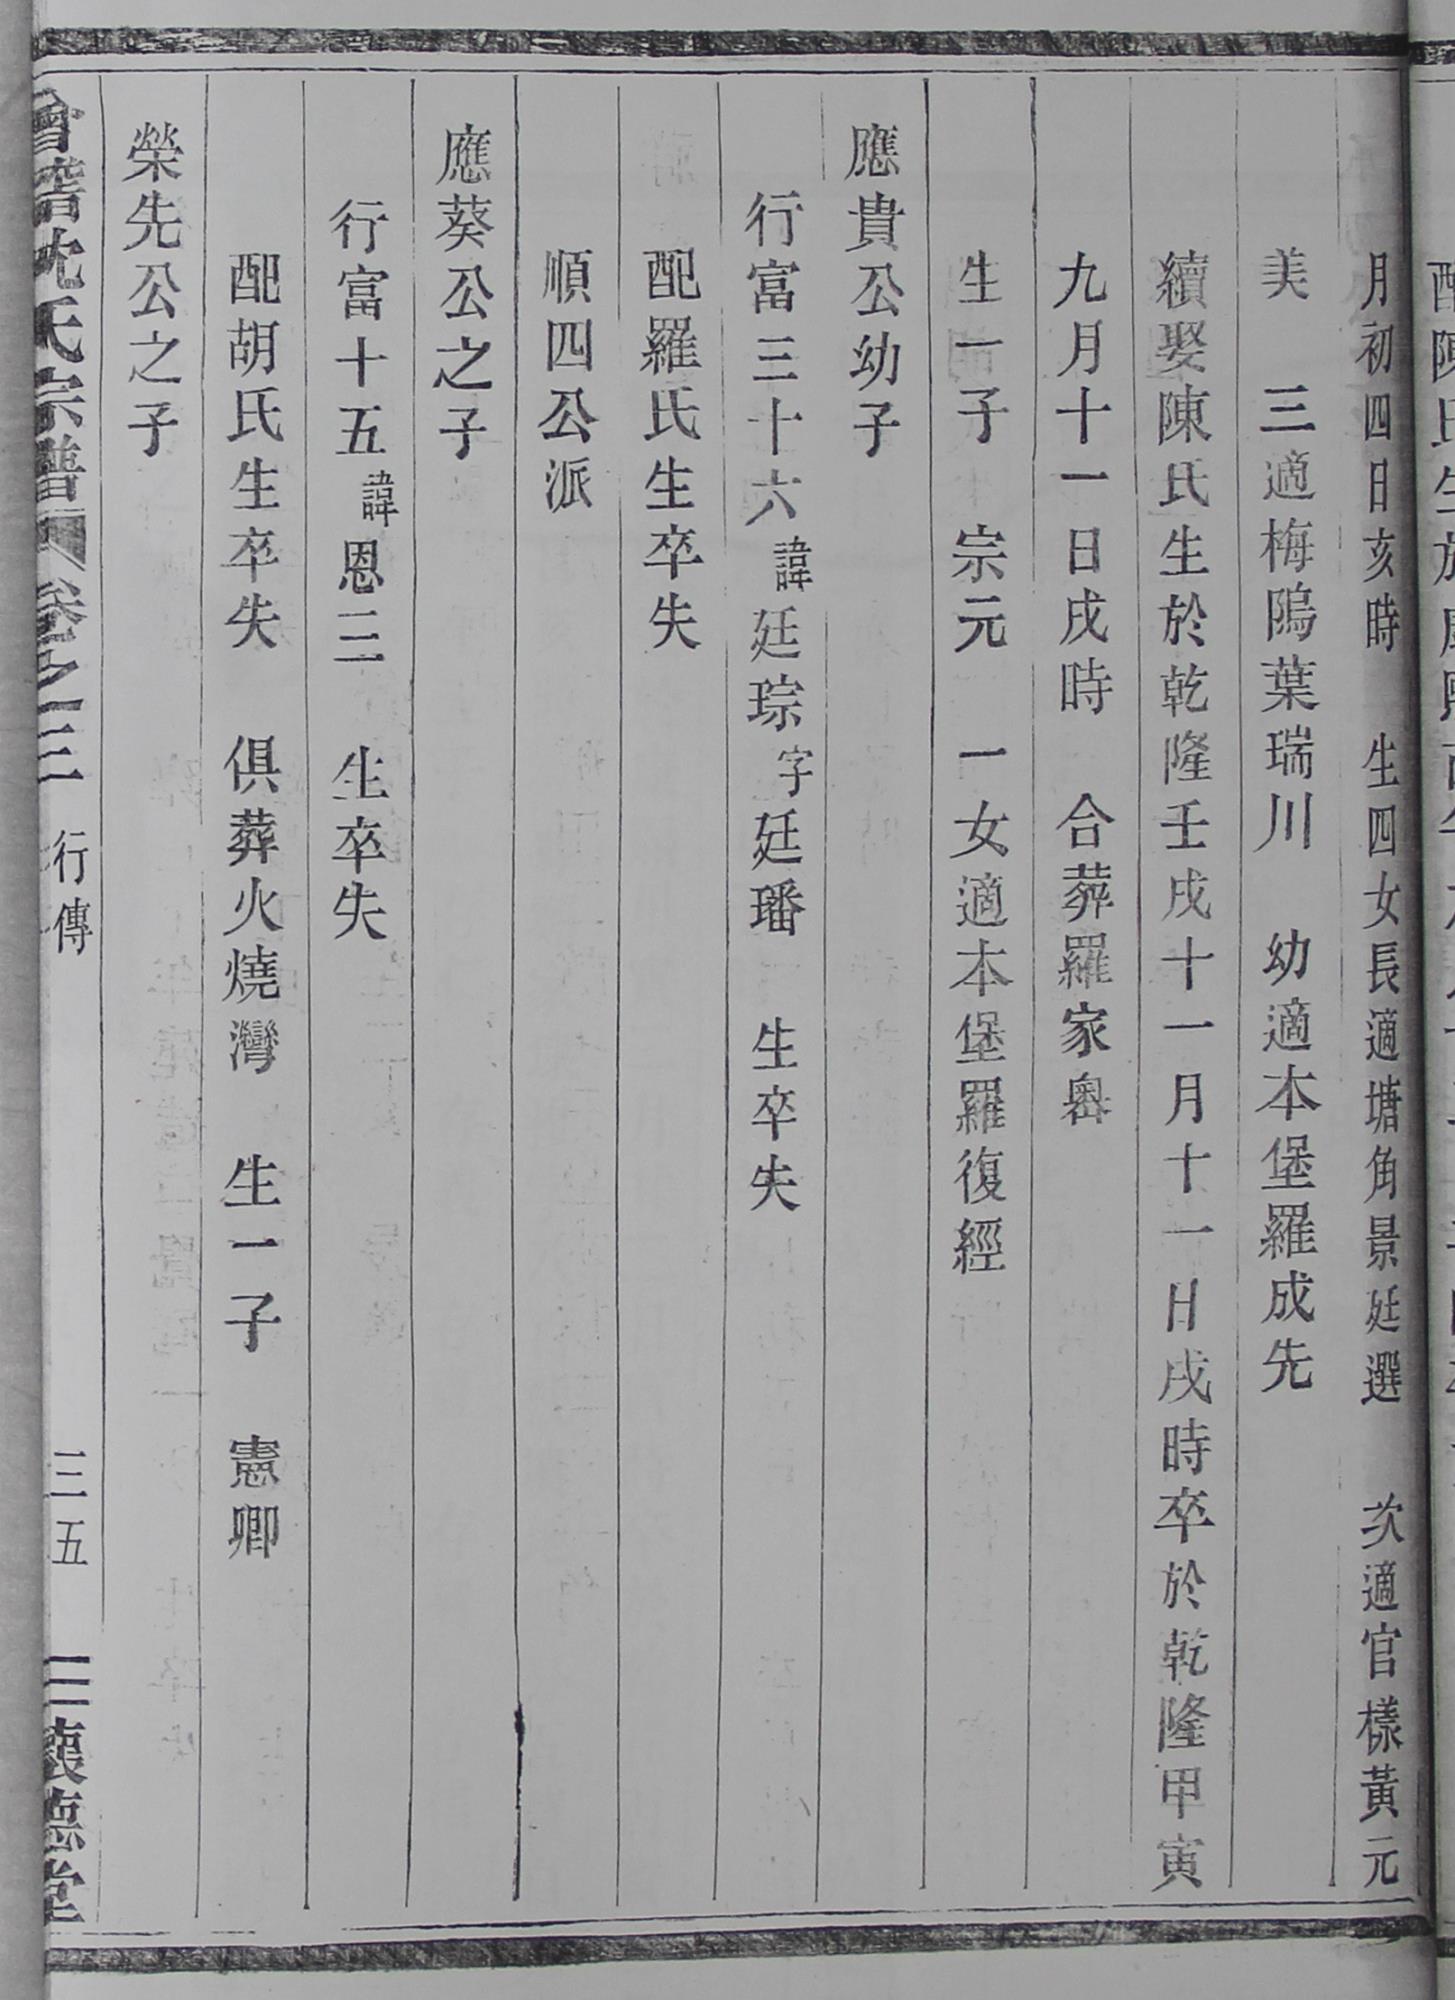 月初四日亥時　生四女長適塘角景廷選　次適官樣黃元
美　三適梅隝葉瑞川　幼適本堡羅成先
續娶陳氏生於乾隆壬戌十一月十一日戌時卒於乾隆甲寅
九月十一日戌時　合葬羅家嶴
生一子　宗元　一女適本堡羅復經
應貴公幼子
行富三十六諱廷琮字廷璠　生卒失
配羅氏生卒失
順四公派
應葵公之子
行富十五諱恩三　生卒失
配胡氏生卒失　俱葬火燒灣　生一子　憲卿
榮先公之子
會稽沈氏宗譜　卷之三　行傳　三五　懷德堂